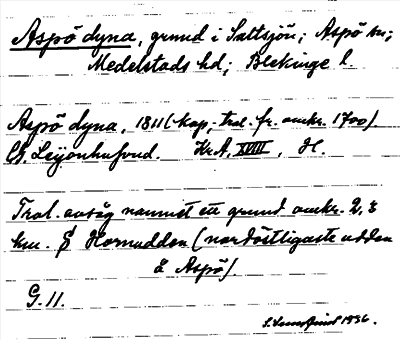 Aspö dyna, grund i Saltsjön; Aspö sn;
Medelstads hd; Blekinge l.
Aspö dyna, 1811 (kop, trol. fr. omkr. 1700)
CG Leijonhufvud. KrA, XVIII, H.
Trol. avsåg namnet ett grund omkr. 2,3
km. Ö Hornudden (nordöstligaste udden
å Aspö).
G. 11.
1936.